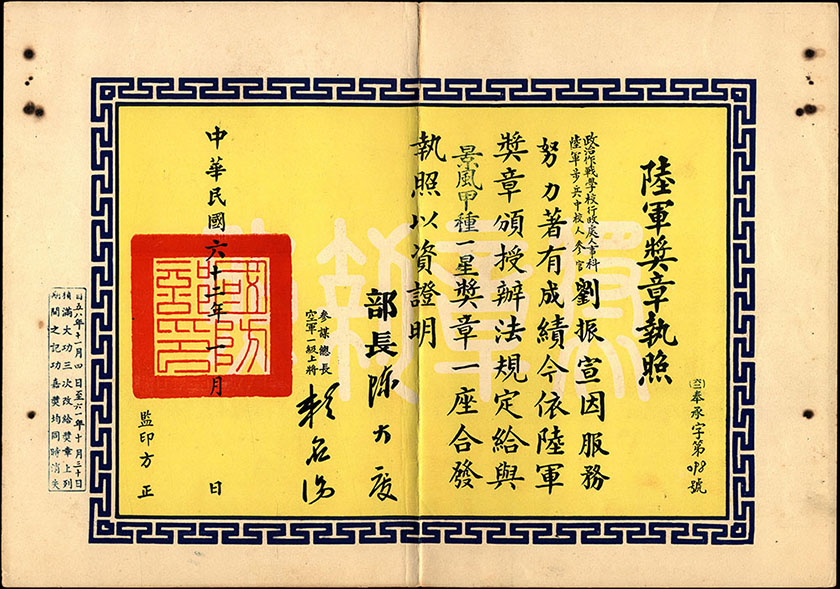 陸軍獎章執照
(六二)奉承字第098號
政治作戰學校行政處人事科
陸軍步兵中校人參官
劉振宣因服務
努力著有成績今依陸軍
獎章頒授辦法規定給與
景風甲種一星獎章一座合發
執照以資證明
部長陳大慶
參謀總長
空軍一級上將
賴名湯
中華民國六十二年一月 日
監印方正
國防部印
自五八年十一月四日至六一年十月三十日
積滿大功三次改給獎章上列
期間之記功嘉獎均同時消失